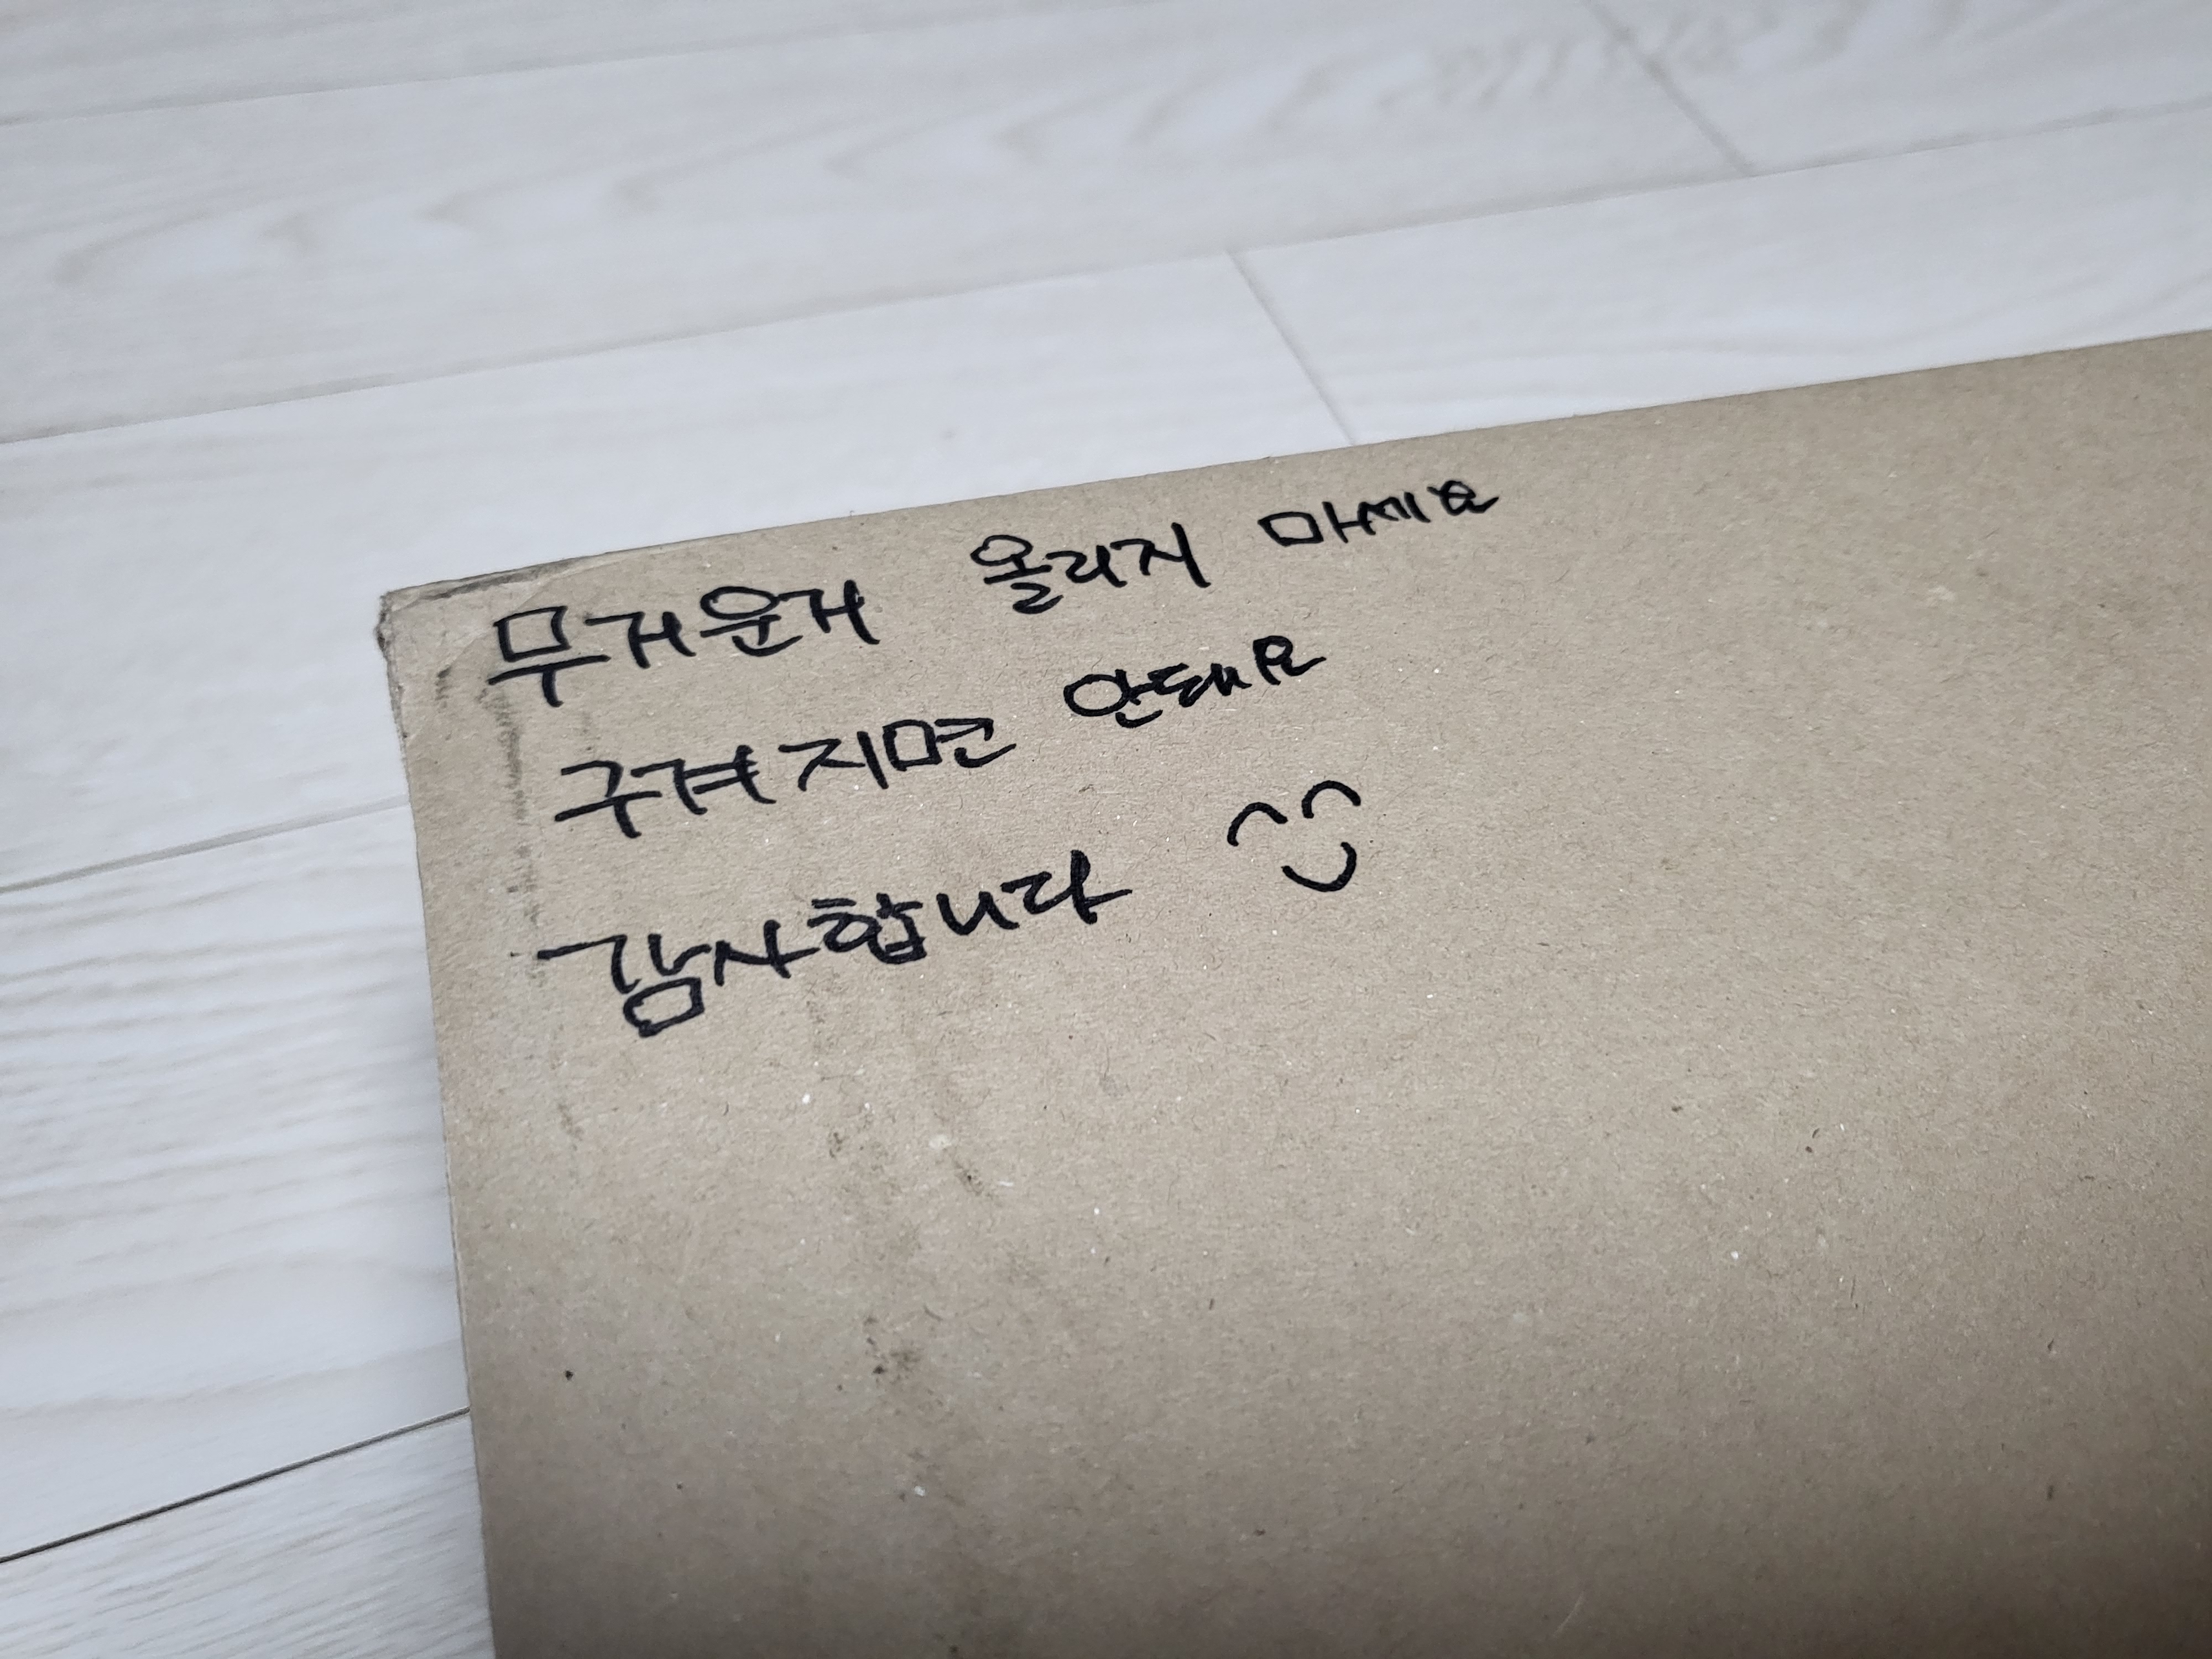 무거운거 올리지 마세요
구겨지면 안돼요
감사합니다